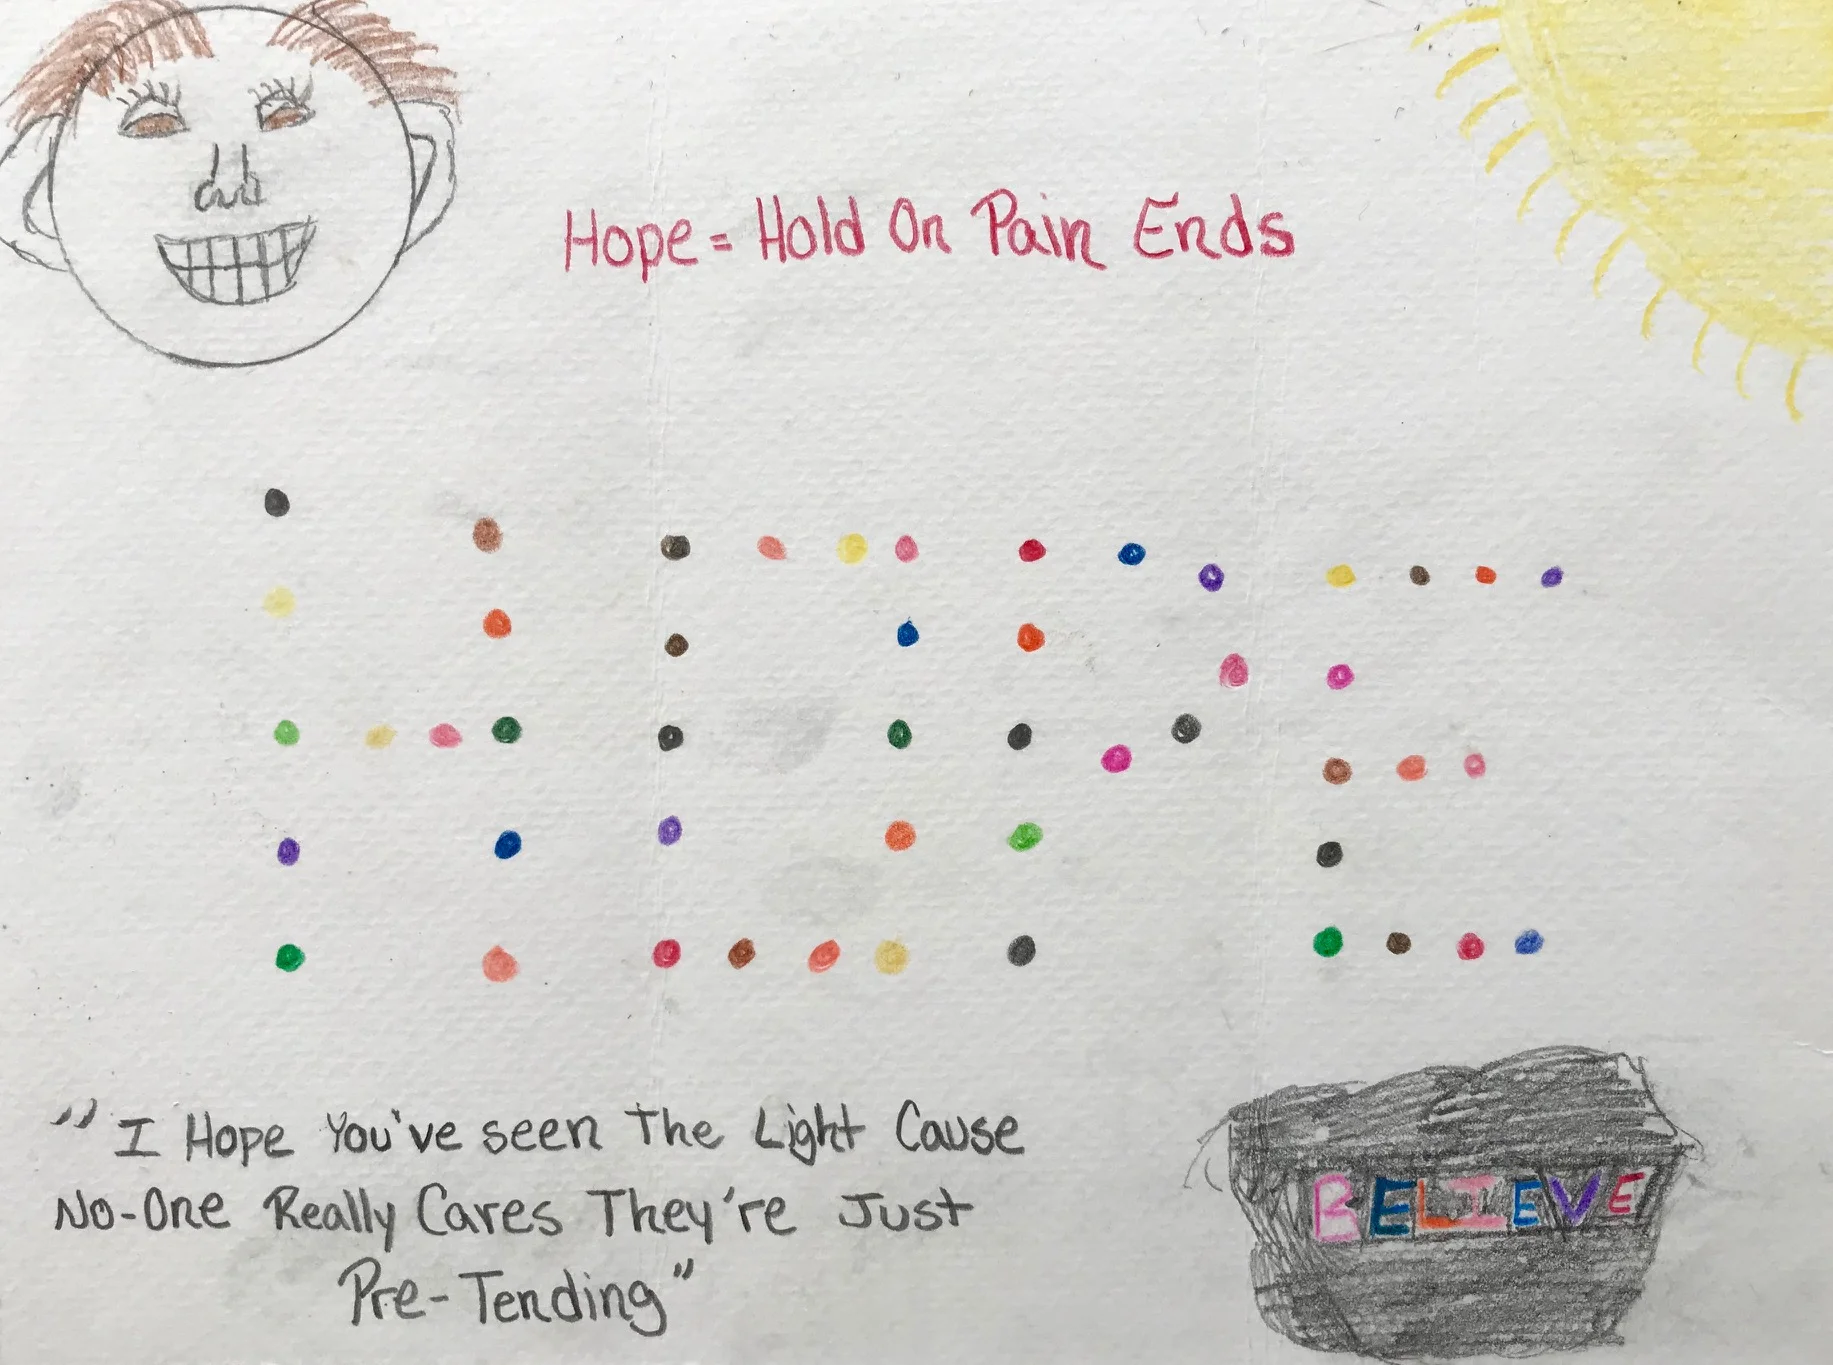 Hope = Hold On Pain Ends
HOPE
"I Hope You've seen The Light Cause
No-One Really Cares They're Just
Pre-Tending"
BELIEVE